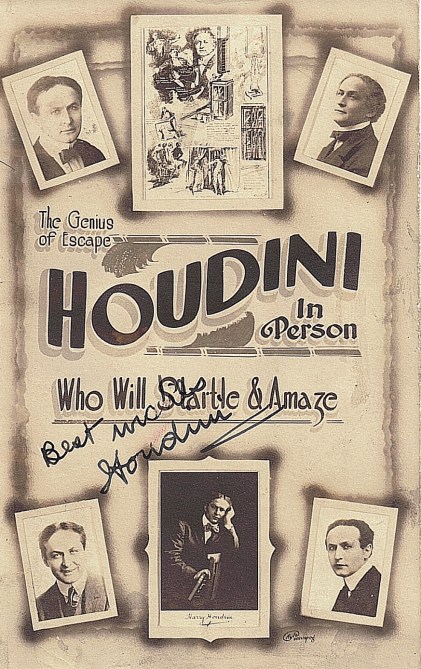 The Genius
of Escape
HOUDINI
In
Person
Who Will Startle & Amaze
Best wishes
Houdini
Harry Houdini